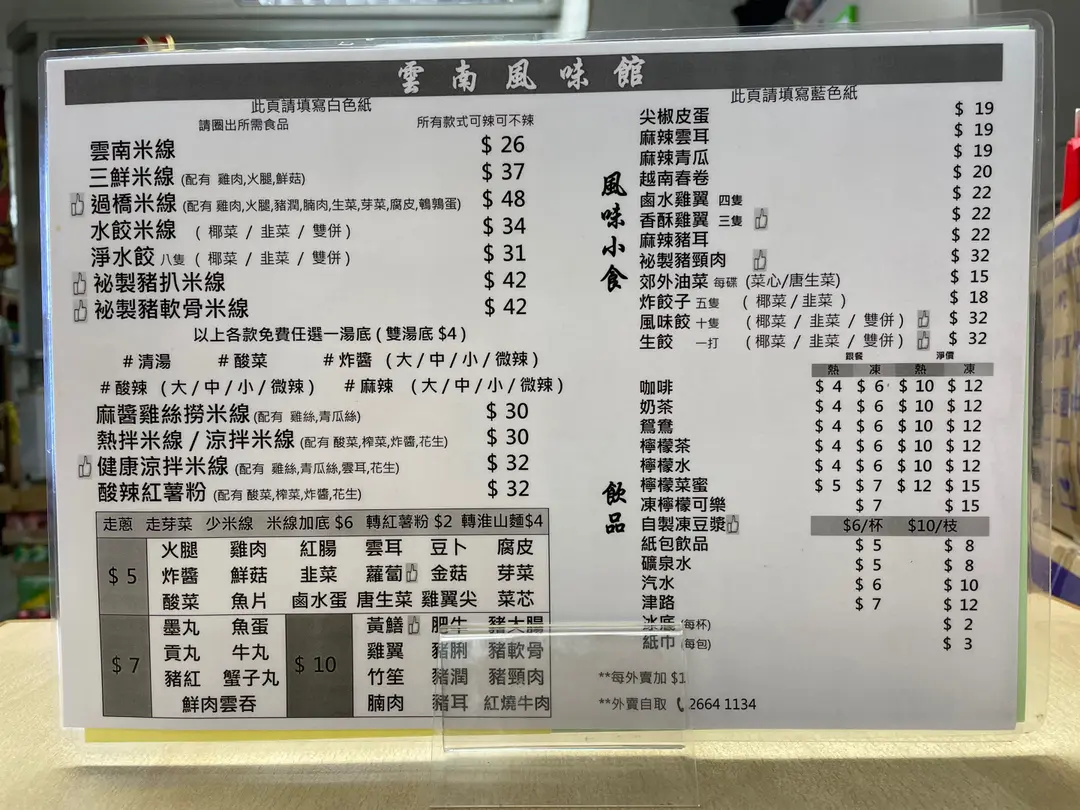 雲南風味館
此頁請填寫白色紙
請圈出所需食品 所有款式可辣可不辣
雲南米線 $ 26
三鮮米線 (配有 雞肉,火腿,鮮菇) $ 37
過橋米線 (配有 雞肉,火腿,豬潤,腩肉,生菜,芽菜,腐皮,鵪鶉蛋) $ 48
水餃米線 ( 椰菜 / 韭菜 / 雙併 ) $ 34
淨水餃 八隻 ( 椰菜 / 韭菜 / 雙併 ) $ 31
祕製豬扒米線 $ 42
祕製豬軟骨米線 $ 42
以上各款免費任選一湯底 ( 雙湯底 $4 )
# 清湯 # 酸菜 # 炸醬 ( 大 / 中 / 小 / 微辣 )
# 酸辣 ( 大 / 中 / 小 / 微辣 ) # 麻辣 ( 大 / 中 / 小 / 微辣 )
麻醬雞絲撈米線 (配有 雞絲,青瓜絲) $ 30
熱拌米線 / 涼拌米線 (配有 酸菜,榨菜,炸醬,花生) $ 30
健康涼拌米線 (配有 雞絲,青瓜絲,雲耳,花生) $ 32
酸辣紅薯粉 (配有 酸菜,榨菜,炸醬,花生) $ 32
走蔥 走芽菜 少米線 米線加底 $6 轉紅薯粉 $2 轉淮山麵$4
$ 5
火腿 雞肉 紅腸 雲耳 豆卜 腐皮
炸醬 鮮菇 韭菜 蘿蔔 金菇 芽菜
酸菜 魚片 鹵水蛋 唐生菜 雞翼尖 菜芯
$ 7
墨丸 魚蛋
貢丸 牛丸
豬紅 蟹子丸
鮮肉雲吞
$ 10
黃鱔 肥牛 豬大腸
雞翼 豬脷 豬軟骨
竹笙 豬潤 豬頸肉
腩肉 豬耳 紅燒牛肉
此頁請填寫藍色紙
風味小食
尖椒皮蛋 $ 19
麻辣雲耳 $ 19
麻辣青瓜 $ 19
越南春卷 $ 20
鹵水雞翼 四隻 $ 22
香酥雞翼 三隻 $ 22
麻辣豬耳 $ 22
祕製豬頸肉 $ 32
郊外油菜 每碟 (菜心/唐生菜) $ 15
炸餃子 五隻 ( 椰菜 / 韭菜 ) $ 18
風味餃 十隻 ( 椰菜 / 韭菜 / 雙併 ) $ 32
生餃 一打 ( 椰菜 / 韭菜 / 雙併 ) $ 32
飲品
跟餐 淨價
熱 凍 熱 凍
咖啡 $ 4 $ 6 $ 10 $ 12
奶茶 $ 4 $ 6 $ 10 $ 12
鴛鴦 $ 4 $ 6 $ 10 $ 12
檸檬茶 $ 4 $ 6 $ 10 $ 12
檸檬水 $ 4 $ 6 $ 10 $ 12
檸檬菜蜜 $ 5 $ 7 $ 12 $ 15
凍檸檬可樂 $ 7 $ 15
自製凍豆漿 $6/杯 $10/枝
紙包飲品 $ 5 $ 8
礦泉水 $ 5 $ 8
汽水 $ 6 $ 10
津路 $ 7 $ 12
冰底 (每杯) $ 2
紙巾 (每包) $ 3
**每外賣加 $1
**外賣自取 2664 1134